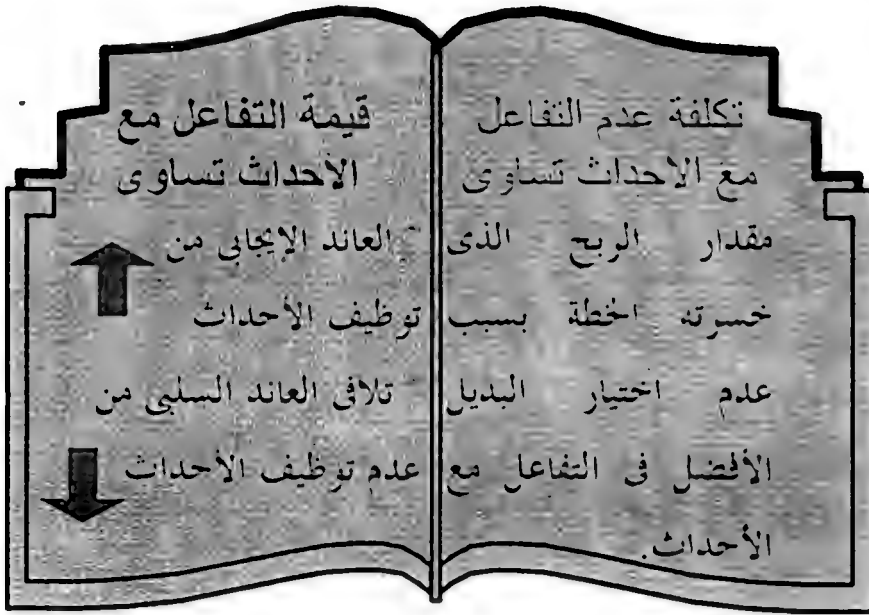 تكلفة عدم التفاعل
مع الأحداث تساوى
مقدار الربح الذى
خسرته الخطة بسبب
عدم اختيار البديل
الأفضل فى التفاعل مع
الأحداث.
قيمة التفاعل مع
الأحداث تساوى
العائد الإيجابى من
توظيف الأحداث
تلافى العائد السلبى من
عدم توظيف الأحداث